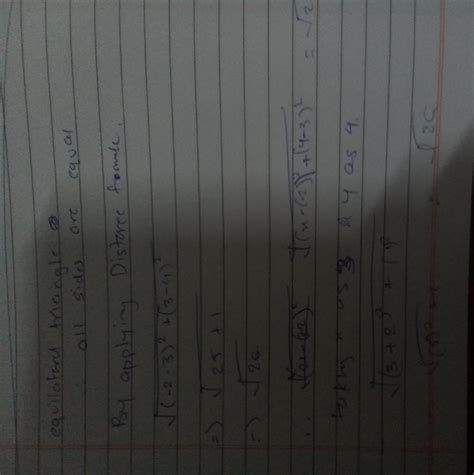 equilateral triangle
∴ all sides are equal
By applying Distance formula.
√(-2-3)² + (3-4)²
⇒ √25 + 1
⇒ √26
∴ √(x-(-2))² + (4-3)² = √2
taking x as 3 & y as 4.
√(3+2)² + 1²
√26